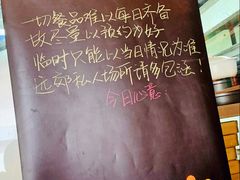 一切餐品难以每日齐备
故尽量以预约为好
临时只能以当日情况为准
远郊私人场所请多包涵！
今日心意：